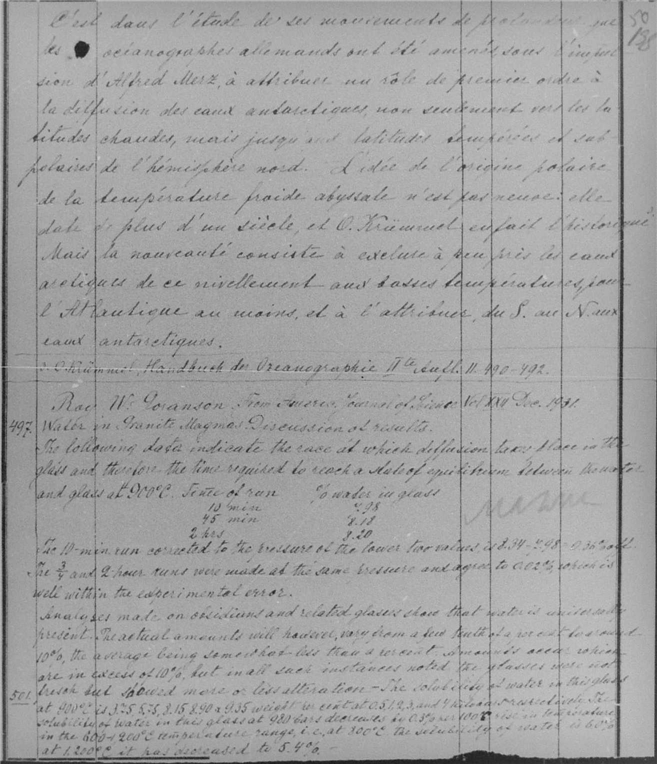 50
C'est dans l'étude de ses mouvements de profondeur que
les océanographes allemands ont été amenés sous l'impul
sion d'Alfred Merz, à attribuer un rôle de premier ordre à
la diffusion des eaux antarctiques, non seulement vers les la-
titudes chaudes, mais jusqu'aux latitudes tempérées et sub-
polaires de l'hémisphère nord. L'idée de l'origine polaire
de la température froide abyssale n'est pas neuve: elle
date de plus d'un siècle, et O. Krümmel en fait l'historique
Mais la nouveauté consiste à exclure à peu près les eaux
arctiques de ce nivellement aux basses températures, pour
l'Atlantique au moins, et à l'attribuer, du S. au N. aux
eaux antarctiques.
O. Krümmel, Handbuch der Ozeanographie IIte Aufl. II. 490-492.
Roy W. Goranson From America Journal of Science Vol XXII Dec. 1931.
497. Water in Granite Magmas Discussion of results.
The following data indicate the rate at which diffusion takes place in the
glass and therefore the time required to reach a state of equilibrium between the water
and glass at 900°C. Time of run % water in glass
10 min 7.98
45 min 8.18
2 hrs 8.20
The 10-min run corrected to the pressure of the lower two values, is 8.34-7.98 = 0.36% off.
The 3/4 and 2 hour runs were made at the same pressure and agree to 0.02%, which is
well within the experimental error.
Analyses made on obsidians and related glasses show that water is universally
present - The actual amounts will however, vary from a few tenth of a percent to around
10%, the average being somewhat less than a percent. Amounts occur which
are in excess of 10%, but in all such instances noted the glasses were not
fresh but showed more or less alteration - The solubility of water in this glass
501. at 900°C is 3.75, 5.75, 8.15, 8.90 a 9.35 weight percent at 0.5, 1, 2, 3, and 4 kilobars respectively. The
solubility of water in this glass at 980 bars decreases in 0.5% per 100°C rise in temperature
in the 600-1200°C temperature range, i.e., at 800°C the solubility of water is 6.0%
at 1,200°C it has decreased to 5.4%. -